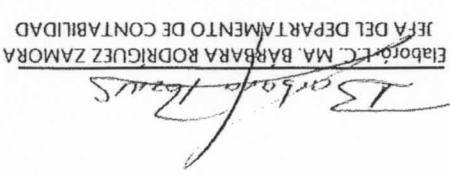 Elaboró: L.C. MA. BÁRBARA RODRÍGUEZ ZAMORA
JEFA DEL DEPARTAMENTO DE CONTABILIDAD